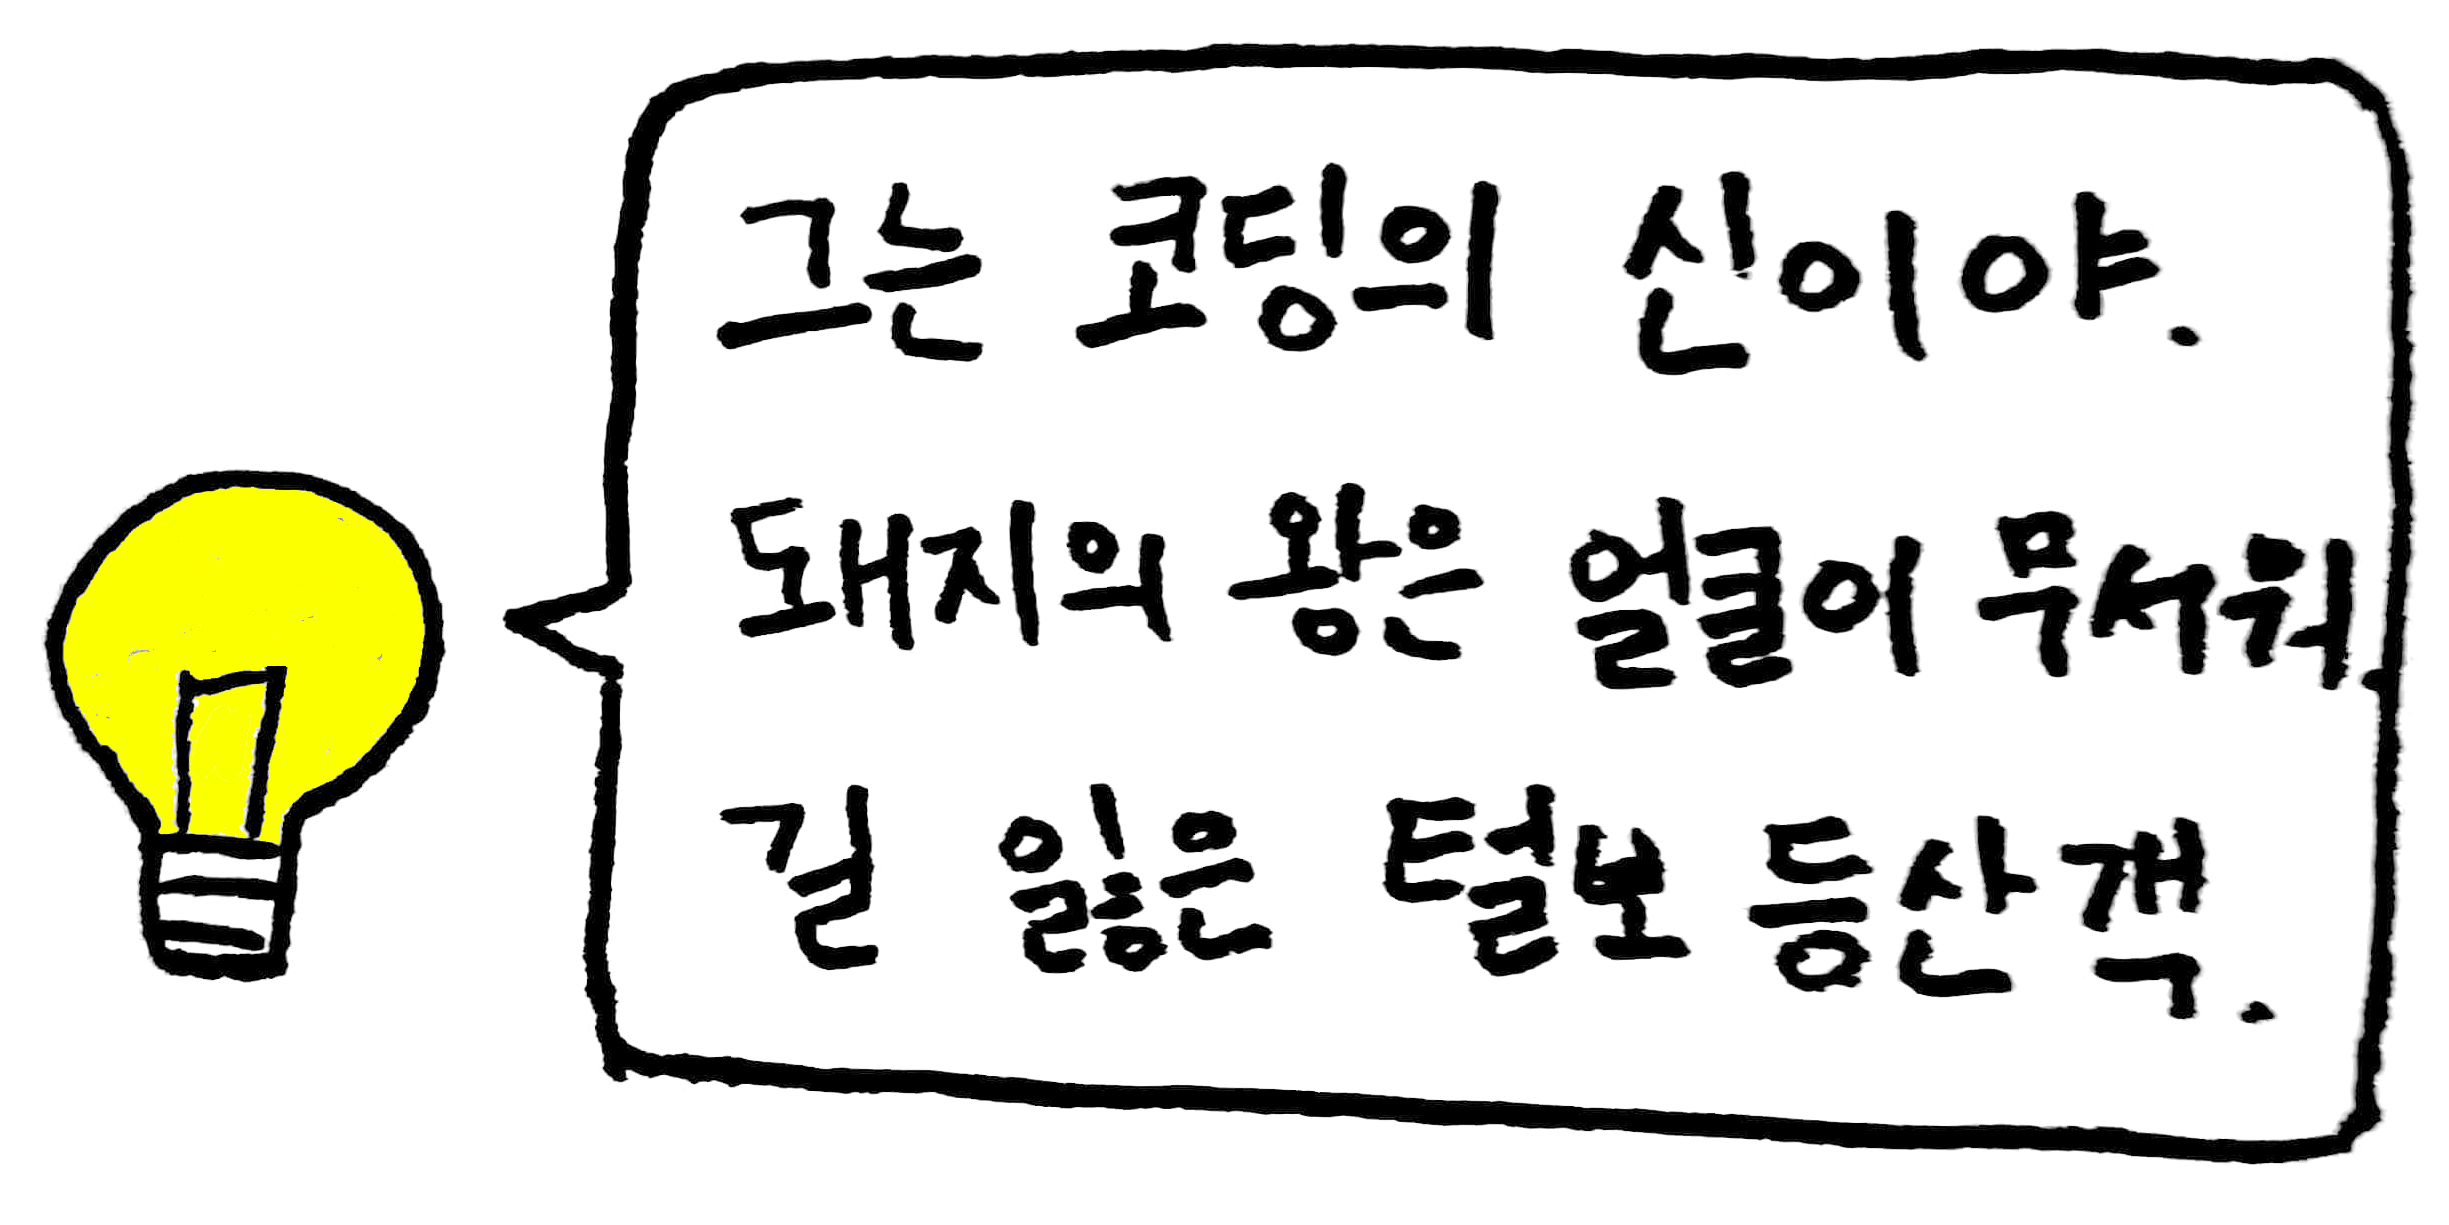 그는 코딩의 신이야.
돼지의 왕은 얼클이 무서워.
길 잃은 털보 등산객.